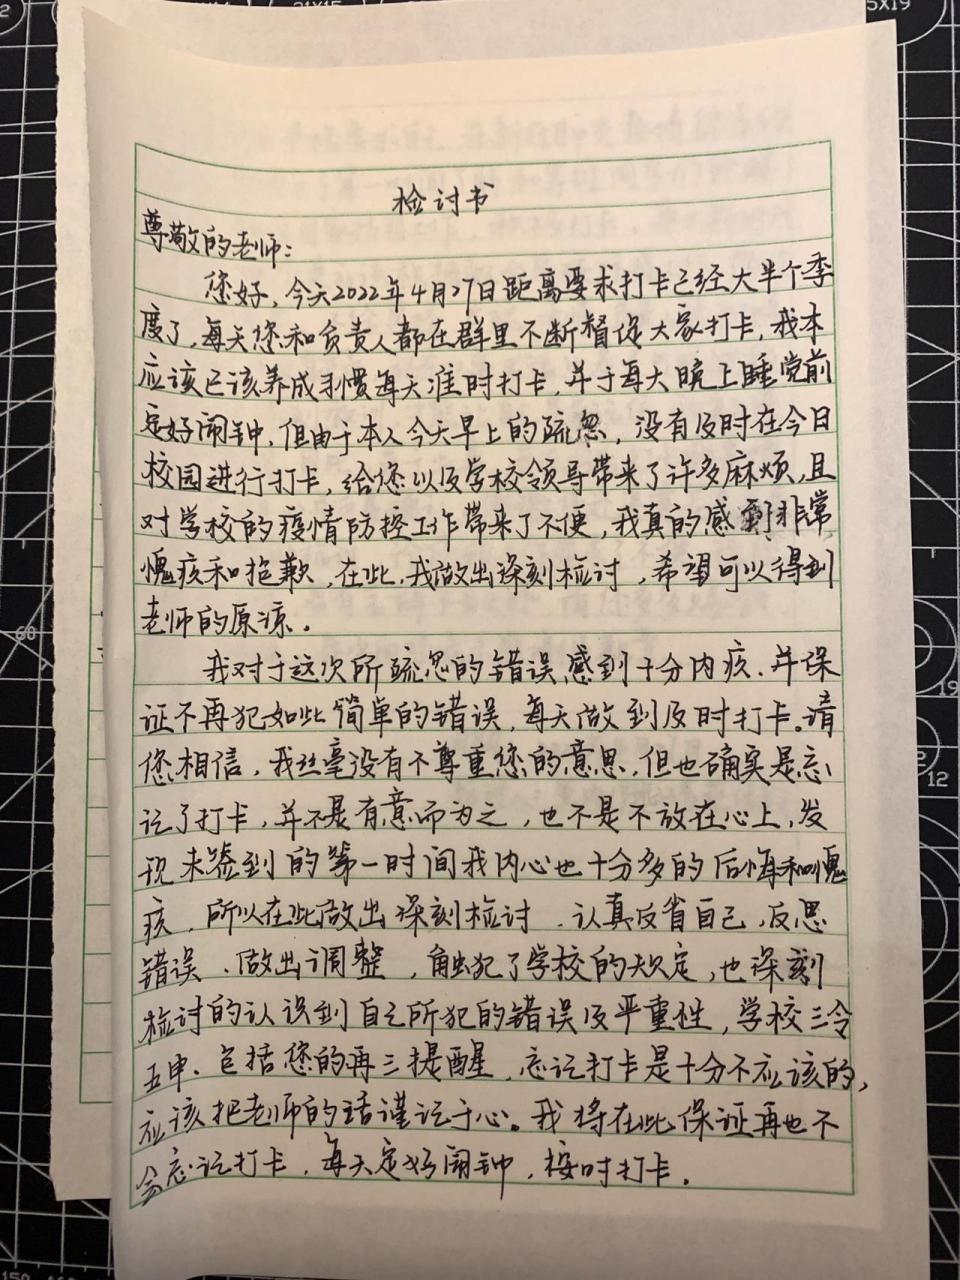 检讨书
尊敬的老师：
您好，今天2022年4月27日距离要求打卡已经大半个季
度了，每天您和负责人都在群里不断督促大家打卡，我本
应该已该养成习惯每天准时打卡，并于每天晚上睡觉前
定好闹钟，但由于本人今天早上的疏忽，没有及时在今日
校园进行打卡，给您以及学校领导带来了许多麻烦，且
对学校的疫情防控工作带来了不便，我真的感到非常
愧疚和抱歉，在此，我做出深刻检讨，希望可以得到
老师的原谅。
我对于这次所疏忽的错误感到十分内疚，并保
证不再犯如此简单的错误，每天做到及时打卡。请
您相信，我丝毫没有不尊重您的意思，但也确实是忘
记了打卡，并不是有意而为之，也不是不放在心上，发
现未签到的第一时间我内心也十分多的后悔和愧
疚，所以在此做出深刻检讨，认真反省自己，反思
错误、做出调整，触犯了学校的规定，也深刻
检讨的认识到自己所犯的错误及严重性，学校三令
五申、包括您的再三提醒，忘记打卡是十分不应该的，
应该把老师的话谨记于心。我将在此保证再也不
会忘记打卡，每天定好闹钟，按时打卡。
60
12
19
5X19
150
160